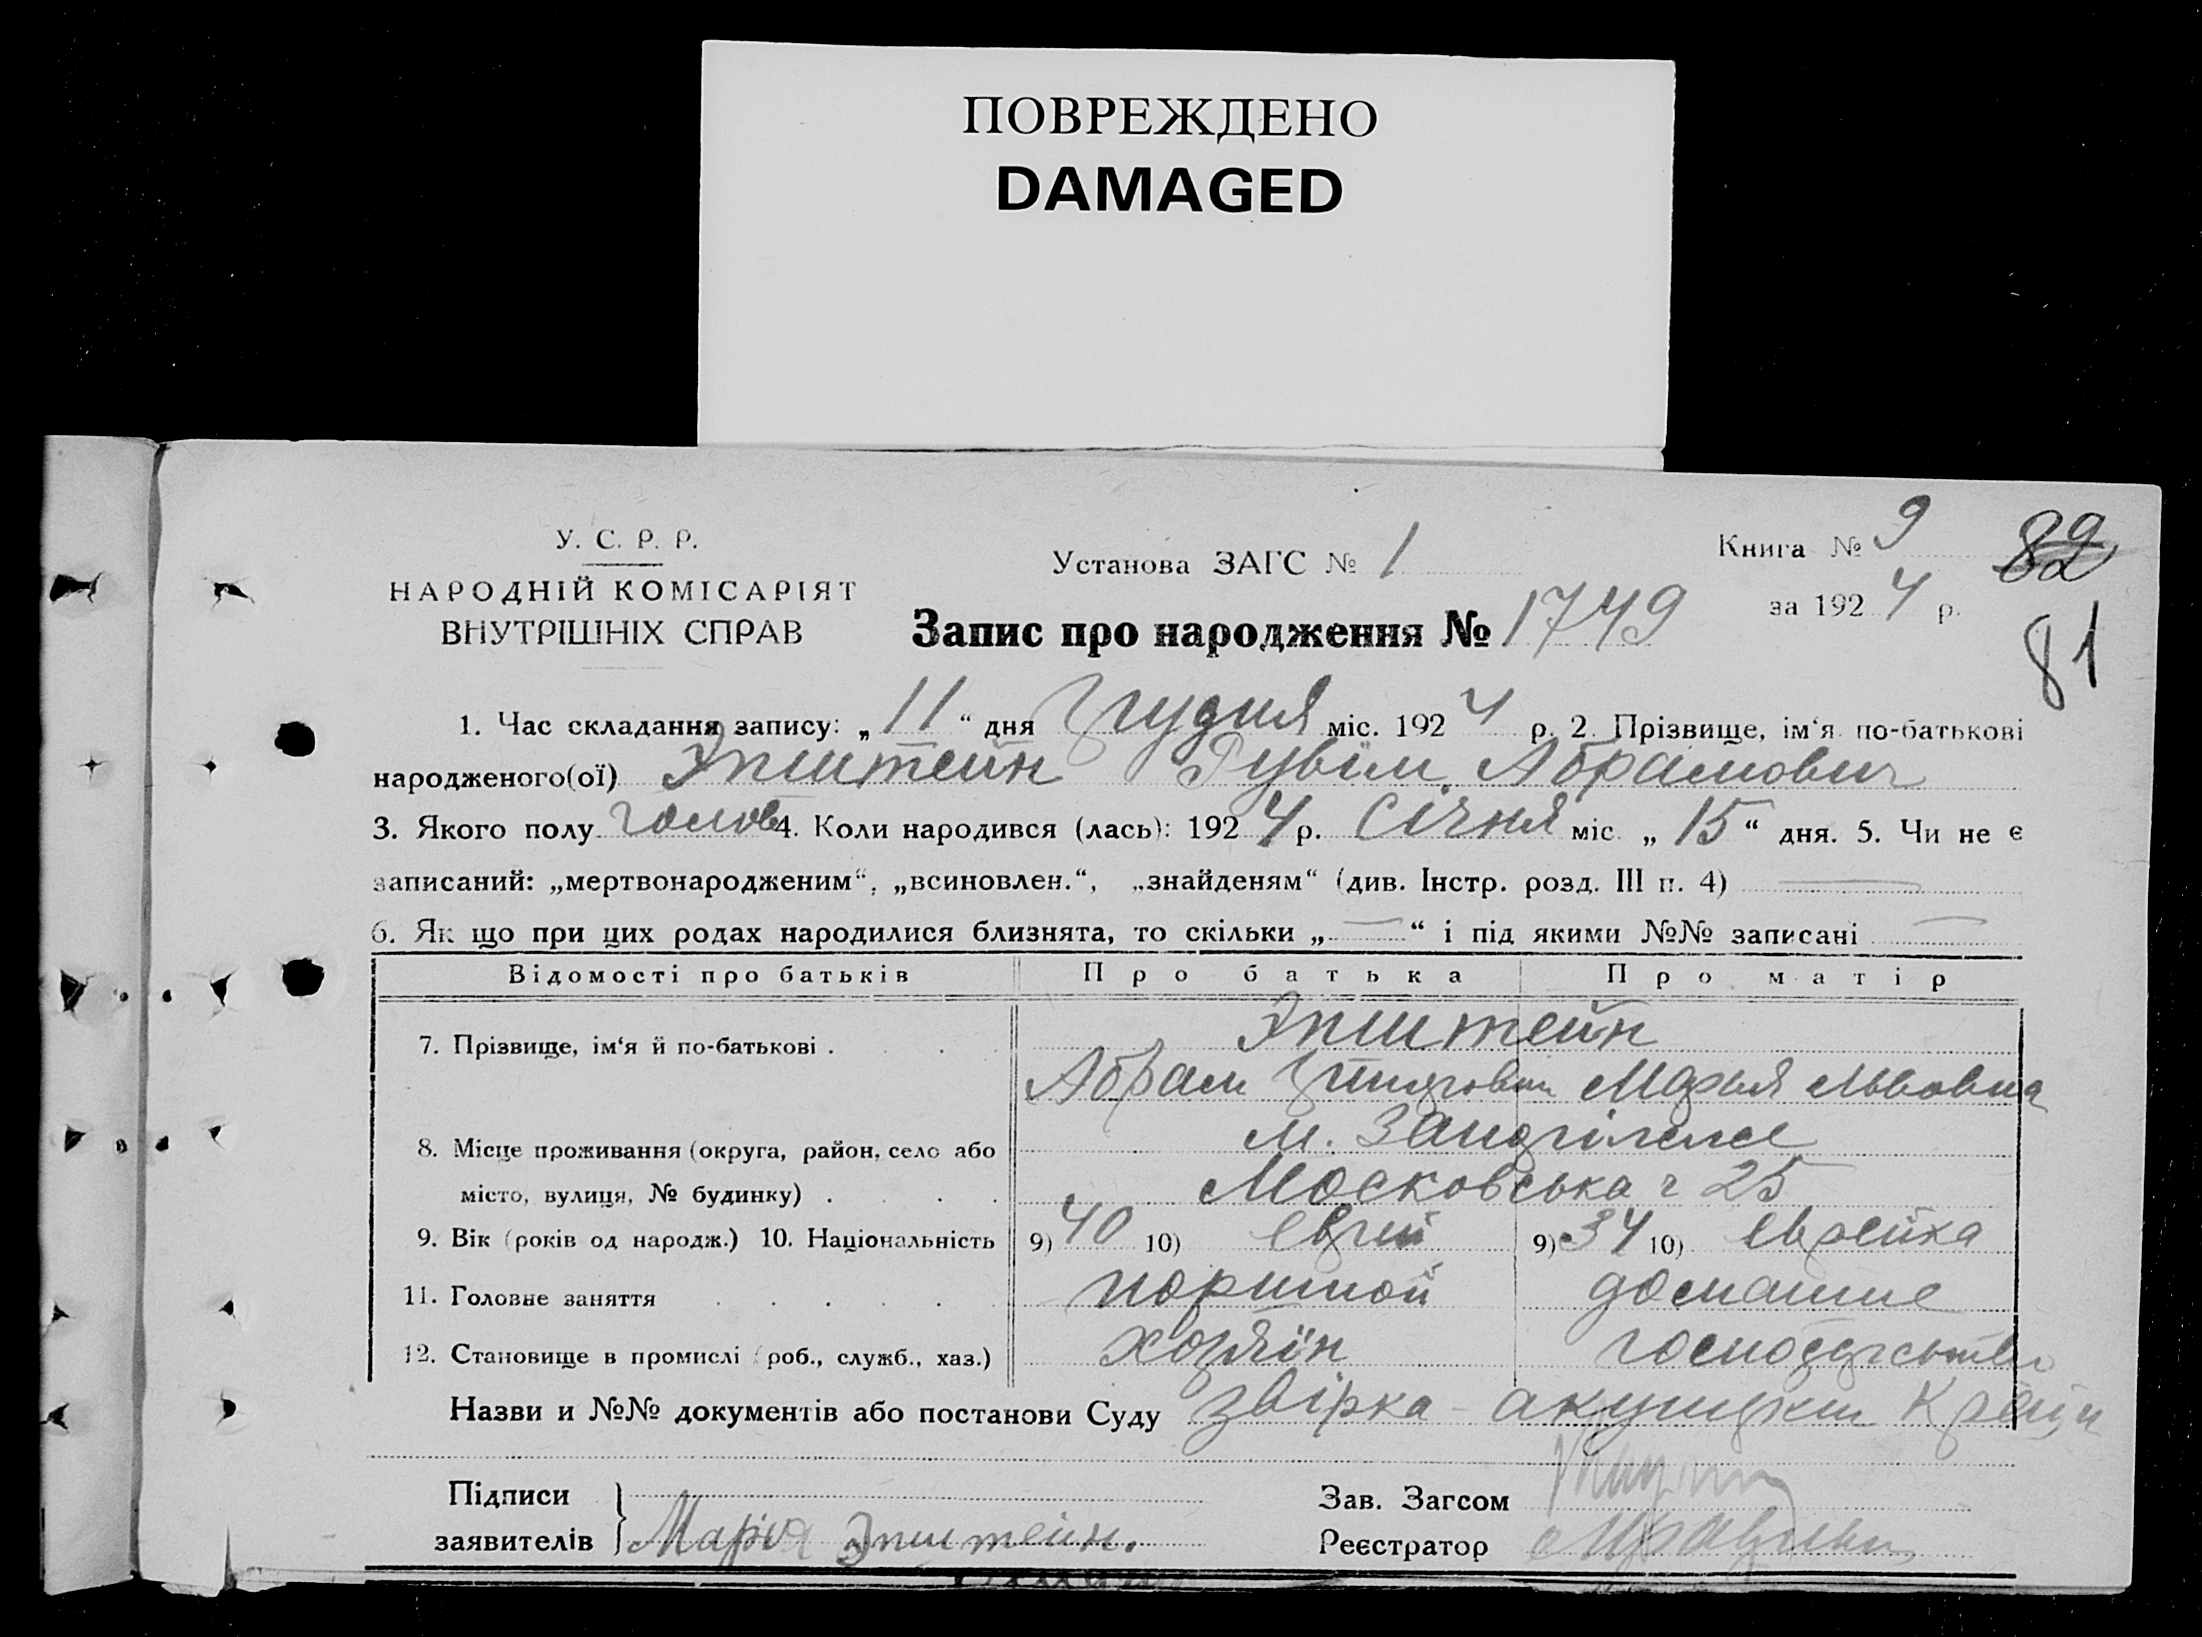 ПОВРЕЖДЕНО
DAMAGED
У. С. Р. Р.
НАРОДНІЙ КОМІСАРІЯТ
ВНУТРІШНІХ СПРАВ
Установа ЗАГС № 1
Запис про народження № 1749
Книга № 9
за 1924 р.
82
81
1. Час складання запису: „11“ дня Грудня міс. 1924 р. 2. Прізвище, ім‘я по-батькові
народженого(ої) Эпштейн Рувім Абрамович
3. Якого полу голов 4. Коли народився (лась): 1924 р. Січня міс. „15“ дня. 5. Чи не є
записаний: „мертвонародженим“, „всиновлен.“, „знайденям“ (див. Інстр. розд. III п. 4) —
6. Як що при цих родах народилися близнята, то скільки „—“ і під якими №№ записані —
Відомості про батьків Про батька Про матір
7. Прізвище, ім‘я й по-батькові . Эпштейн
Абрам Марья Львовна
8. Місце проживання (округа, район, село або м.
місто, вулиця, № будинку) . Московська 25
9. Вік (років од народж.) 10. Національність 9) 40 10) Еврей 9) 34 10) Еврейка
11. Головне заняття портной домашне
12. Становище в промислі (роб., служб., хаз.) хозяїн господарство
Назви и №№ документів або постанови Суду акушерки
Підписи
заявителів Марія Эпштейн.
Зав. Загсом
Реєстратор